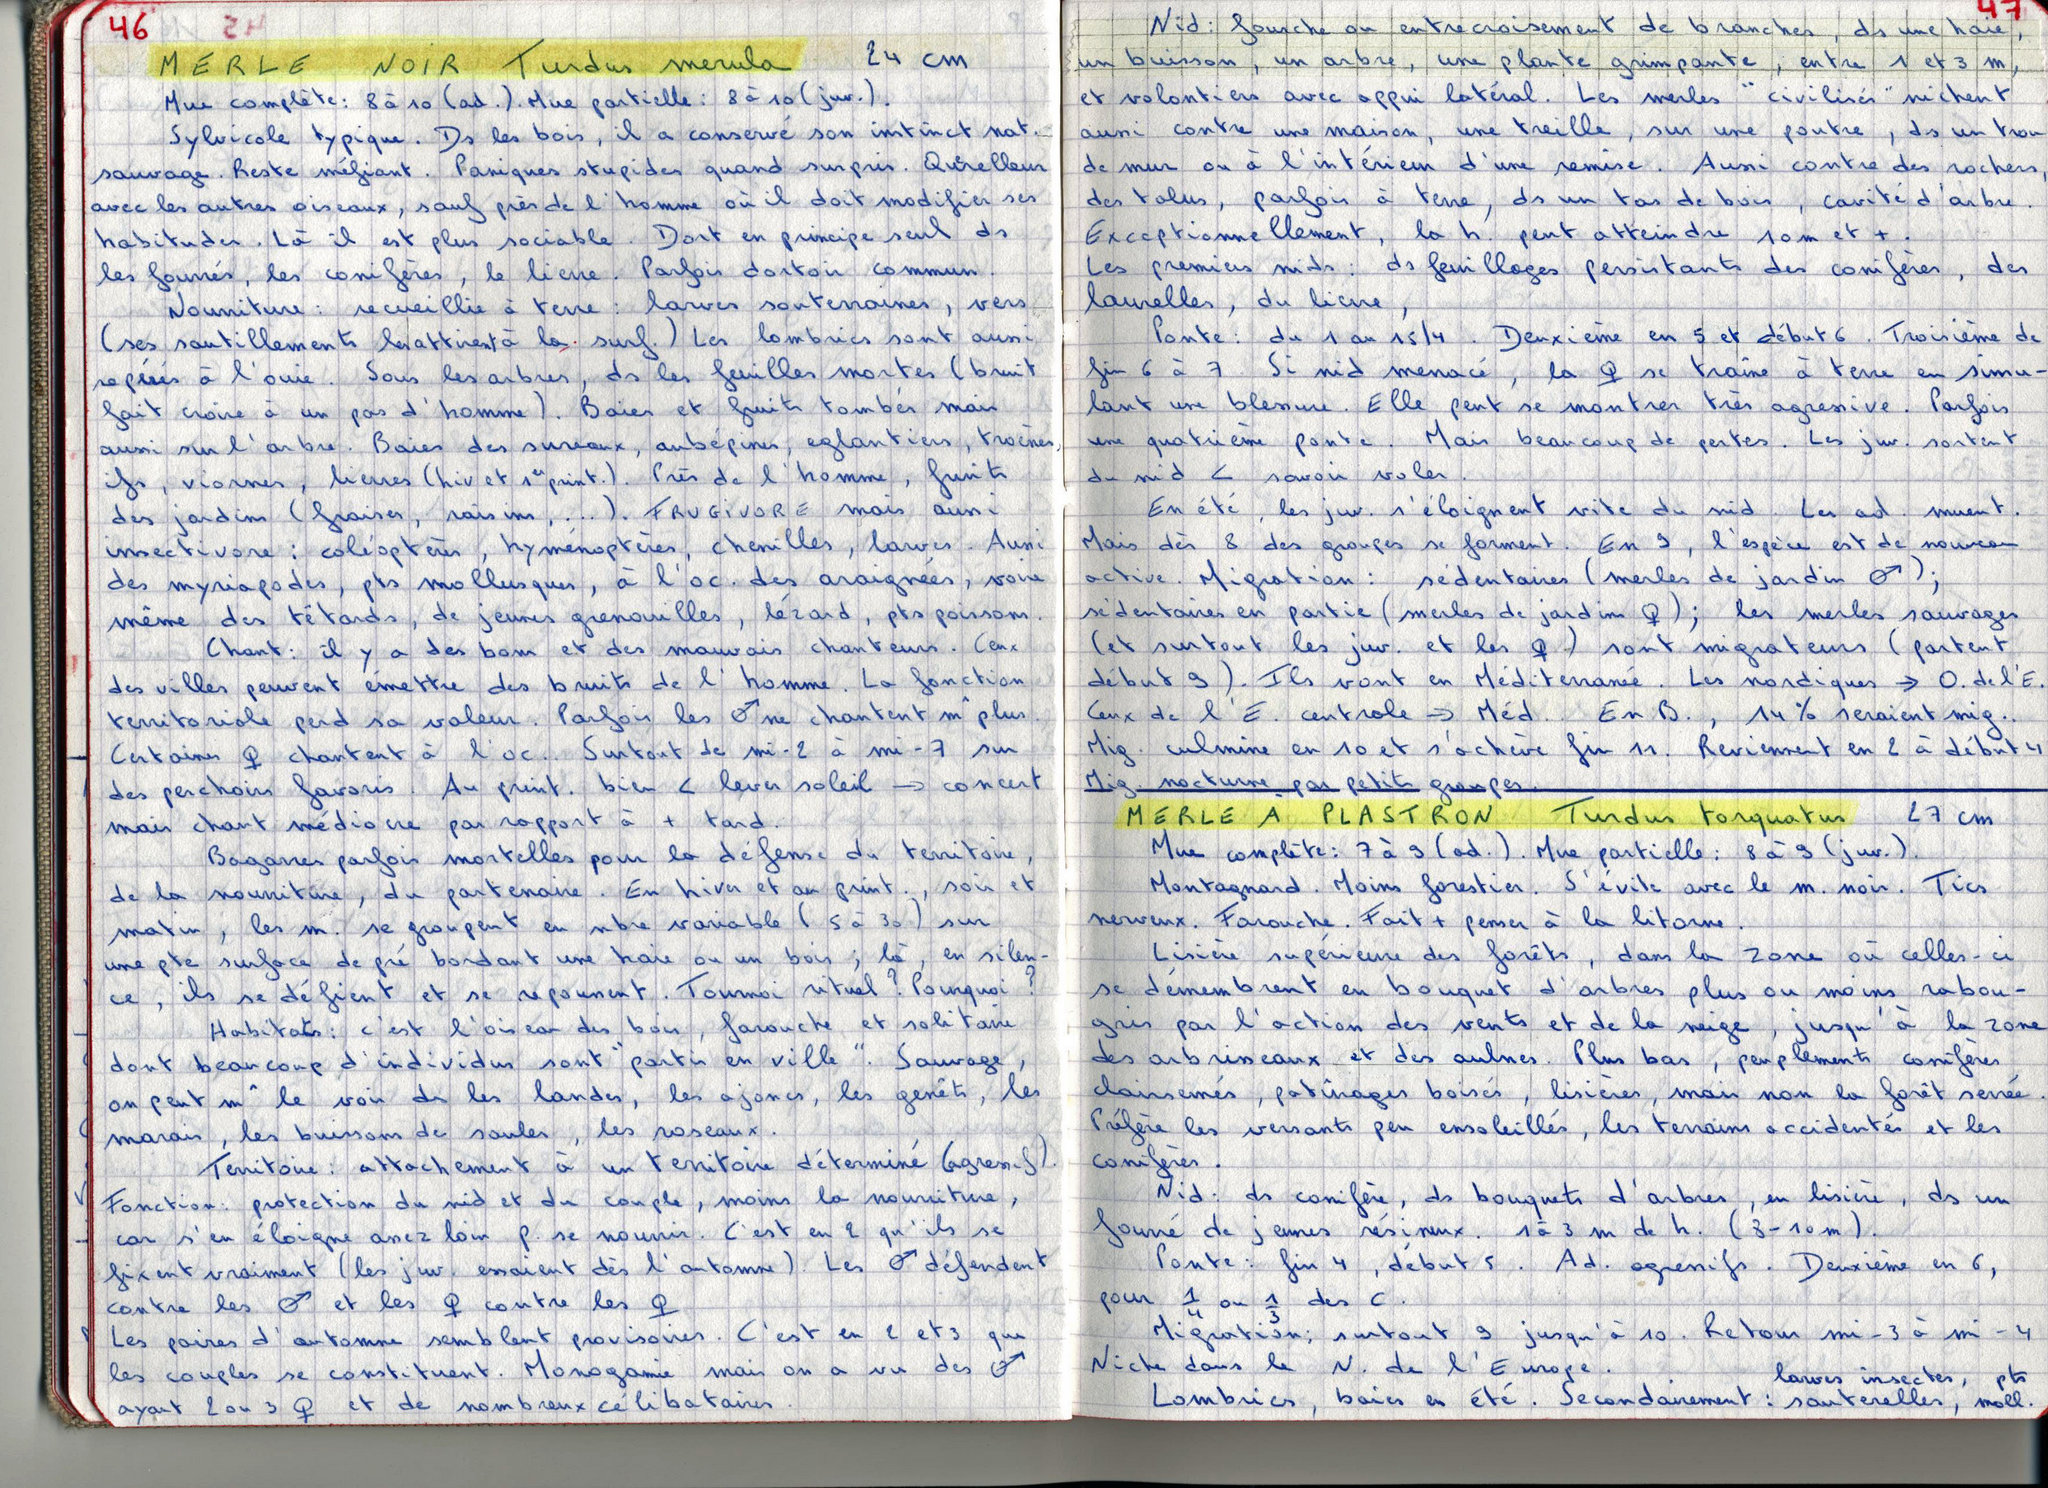 46
MERLE NOIR Turdus merula 24 cm
Mue complète: 8 à 10 (ad.). Mue partielle: 8 à 10 (juv.).
Sylvicole typique. Ds les bois, il a conservé son instinct nat.
sauvage. Reste méfiant. Paniques stupides quand surpris. Querelleur
avec les autres oiseaux, sauf près de l'homme où il doit modifier ses
habitudes. Là il est plus sociable. Dort en principe seul ds
les fourrés, les conifères, le lierre. Parfois dortoir commun.
Nourriture: recueillie à terre: larves souterraines, vers
(ses sautillements les attirent à la surf.) Les lombrics sont aussi
repérés à l'ouïe. Sous les arbres, ds les feuilles mortes (bruit
fait croire à un pas d'homme). Baies et fruits tombés mais
aussi sur l'arbre. Baies des sureaux, aubépines, eglantiers, troènes,
ifs, viornes, lierres (hiv et 1er print.). Près de l'homme, fruits
des jardins (fraises, raisins, ...). FRUGIVORE mais aussi
insectivore: coléoptères, hyménoptères, chenilles, larves. Aussi
des myriapodes, pts mollusques, à l'oc. des araignées, voire
même des têtards, de jeunes grenouilles, lézard, pts poissons.
Chant: il y a des bons et des mauvais chanteurs. Ceux
des villes peuvent émettre des bruits de l'homme. La fonction
territoriale perd sa valeur. Parfois les ♂ ne chantent m^ plus
Certaines ♀ chantent à l'oc.. Surtout de mi-2 à mi-7 sur
des perchoirs favoris. Au print. bien < lever soleil → concert
mais chant médiocre par rapport à + tard.
Bagarres parfois mortelles pour la défense du territoire,
de la nourriture, du partenaire. En hiver et au print., soir et
matin, les m. se groupent en nbre variable (5 à 30) sur
une pte surface de pré bordant une haie ou un bois; là, en silen-
ce, ils se défient et se repoussent. Tournoi rituel? Pourquoi?
Habitats: c'est l'oiseau des bois, farouche et solitaire
dont beaucoup d'individus sont "partis en ville". Sauvage,
on peut m^ le voir ds les landes, les ajoncs, les genêts, les
marais, les buissons de saules, les roseaux.
Territoire: attachement à un territoire déterminé (agressif).
Fonction: protection du nid et du couple, moins la nourriture,
car s'en éloigne assez loin p. se nourrir. C'est en 2 qu'ils se
fixent vraiment (les juv. essaient dès l'automne). Les ♂ défendent
contre les ♂ et les ♀ contre les ♀
Les paires d'automne semblent provisoires. C'est en 2 et 3 que
les couples se constituent. Monogamie mais on a vu des ♂
ayant 2 ou 3 ♀ et de nombreux célibataires.
47
Nid: fourche ou entrecroisement de branches, ds une haie,
un buisson, un arbre, une plante grimpante, entre 1 et 3 m,
et volontiers avec appui latéral. Les merles "civilisés" nichent
aussi contre une maison, une treille, sur une poutre, ds un trou
de mur ou à l'intérieur d'une remise. Aussi contre des rochers,
des talus, parfois à terre, ds un tas de bois, cavité d'arbre.
Exceptionnellement, la h. peut atteindre 10 m et +.
Les premiers nids: ds feuillages persistants des conifères, des
laurelles, du lierre,
Ponte: du 1 au 15/4. Deuxième en 5 et début 6. Troisième de
fin 6 à 7 Si nid menacé, la ♀ se traîne à terre en simu-
lant une blessure. Elle peut se montrer très agressive. Parfois
une quatrième ponte. Mais beaucoup de pertes. Les juv. sortent
du nid < savoir voler.
En été, les juv. s'éloignent vite du nid. Les ad. muent.
Mais dès 8 des groupes se forment. En 9, l'espèce est de nouveau
active. Migration: sédentaires (merles de jardin ♂);
sédentaires en partie (merles de jardin ♀); les merles sauvages
(et surtout les juv. et les ♀) sont migrateurs (partent
début 9). Ils vont en Méditerranée. Les nordiques → O. de l'E.
Ceux de l'E. centrale → Méd. En B., 14% seraient mig..
Mig. culmine en 10 et s'achève fin 11. Reviennent en 2 à début 4
Mig. nocturne par petits groupes.
MERLE À PLASTRON Turdus torquatus 27 cm
Mue complète: 7 à 9 (ad.). Mue partielle: 8 à 9 (juv.).
Montagnard. Moins forestier. S'évite avec le m. noir. Tics
nerveux. Farouche. Fait + penser à la litorne.
Lisière supérieure des forêts, dans la zone où celles-ci
se démembrent en bouquet d'arbres plus ou moins rabou-
gris par l'action des vents et de la neige, jusqu'à la zone
des arbrisseaux et des aulnes. Plus bas, peuplements conifères
clairsemés, pâturages boisés, lisières, mais non la forêt serrée.
Préfère les versants peu ensoleillés, les terrains accidentés et les
conifères.
Nid: ds conifère, ds bouquets d'arbres, en lisière, ds un
fourré de jeunes résineux. 1 à 3 m de h. (3-10m).
Ponte: fin 4, début 5. Ad. agressifs. Deuxième en 6,
pour 1/4 ou 1/3 des C.
Migration: surtout 9 jusqu'à 10. Retour mi-3 à mi-4
Niche dans le N. de l'Europe.
larves insectes, pts
Lombrics, baies en été. Secondairement: sauterelles, moll.